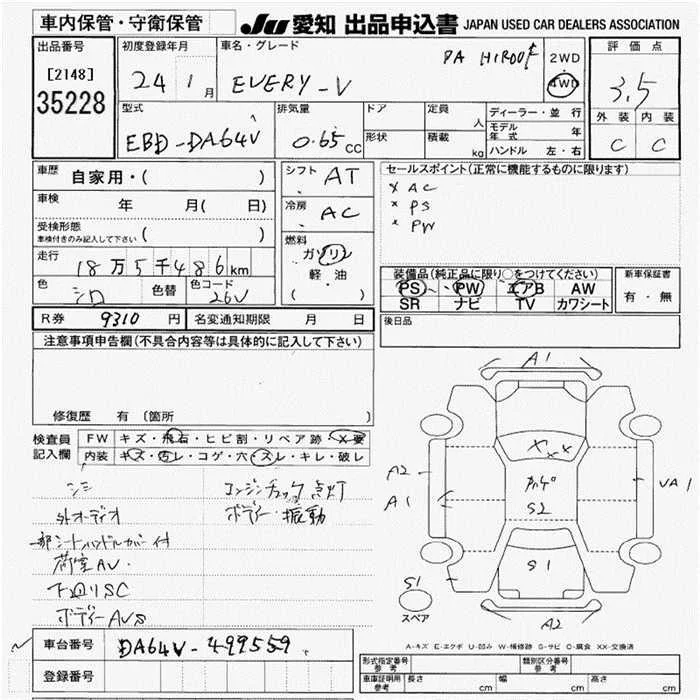 車内保管・守衛保管
JU 愛知 出品申込書 JAPAN USED CAR DEALERS ASSOCIATION
出品番号
[2148]
35228
初度登録年月
24 1月
車名・グレード
EVERY-V
PA HIROOF
2WD
4WD
評価点
3.5
外装 内装
C C
型式
EBD-DA64V
排気量
0.65cc
ドア
形状
定員 人
積載 kg
ディーラー・並行
モデル年式 年
ハンドル 左・右
車歴
自家用・( )
車検
年 月( 日)
受検形態
車検付きのみ記入して下さい ( )
走行
18万5千486km
色
シロ
色替
色コード
26V
シフト AT
冷房 AC
燃料
ガソリン
軽・油
( )
セールスポイント(正常に機能するものに限ります)
× AC
× PS
× PW
装備品(純正品に限り○をつけてください)
PS PW エアB AW
SR ナビ TV カワシート
新車保証書
有・無
R券 9310円 名変通知期限 月 日
後日品
注意事項申告欄(不具合内容等は具体的に記入して下さい)
修復歴 有 〔箇所 〕
検査員記入欄
FW キズ・飛石・ヒビ割・リペア跡・X要
内装 キズ・汚レ・コゲ・穴・スレ・キレ・破レ
シミ
外オーディオ
一部シートハンドルカバー付
荷室AV.
下回りSC
ボディーAVS
エンジンチェック点灯
ボディー・振動
A1
A2
A1
S2
VA1
S1
S1
スペア
A2
A-キズ E-エクボ U-凹み W-補修跡 S-サビ C-腐食 XX-交換済
車台番号
DA64V-499559
登録番号
形式指定番号 参考
類別区分番号 参考
車庫証明用 参考 長さ cm 幅 cm 高さ cm